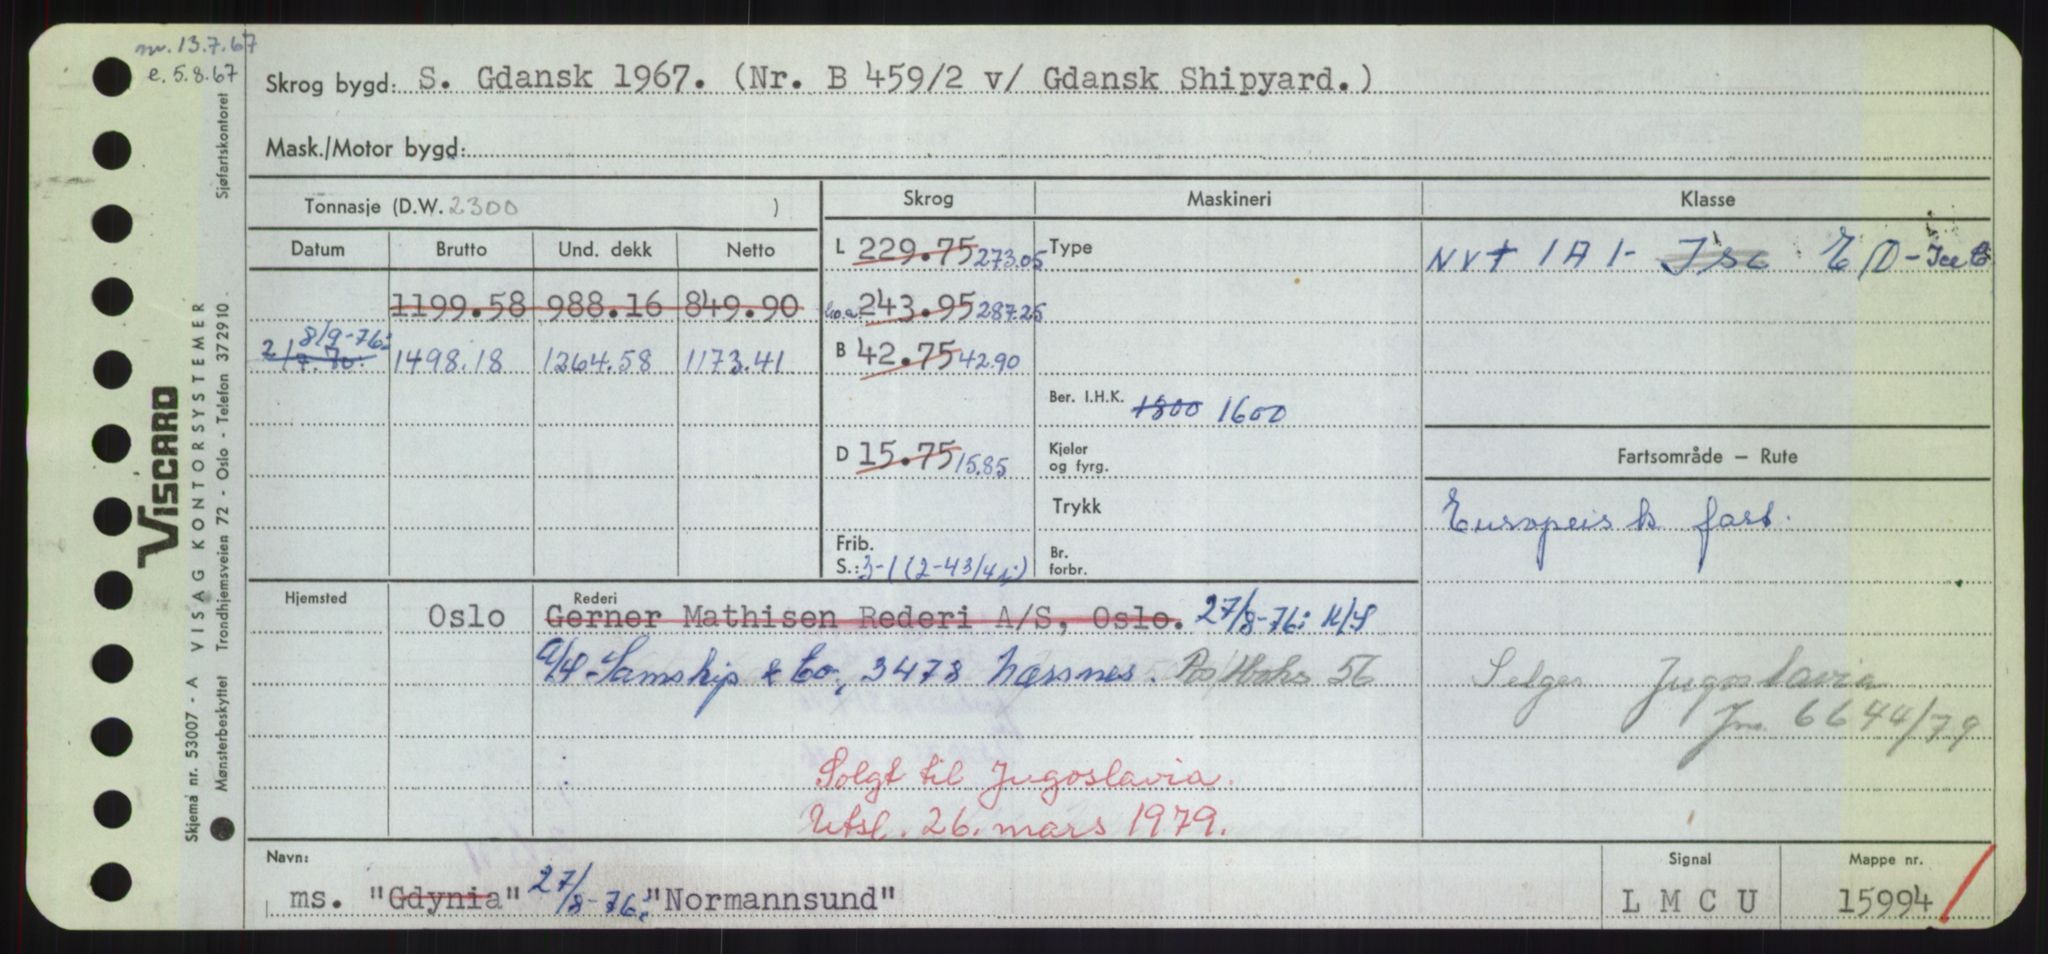 m. 13.7.67
e. 5.8.67
Skrog bygd: S. Gdansk 1967. (Nr. B 459/2 v/ Gdansk Shipyard.)
Mask./Motor bygd:
Tonnasje (D.W. 2300 )
Skrog Maskineri Klasse
Datum Brutto Und. dekk Netto
L 229.75 273.05 Type
NVt 1A1- Isc EO - Ice C
1199.58 988.16 849.90
lo.a. 243.95 287.25
8/9-76:
2/7.70. 1498.18 1264.58 1173.41
B 42.75 42.90
Ber. I.H.K. 1800 1600
D 15.75 15.85
Kjeler og fyrg.
Fartsområde – Rute
Trykk
Europeisk fart.
Frib.
S.: 3-1 (2-4 3/4 s)
Br. forbr.
Hjemsted Oslo
Rederi
Gerner Mathisen Rederi A/S, Oslo. 27/8-76: K/S
A/S Samship & Co., 3478 Nærsnes. Postboks 56
Selges Jugoslavia
Jnr. 6644/79
Solgt til Jugoslavia.
Utsl. 26. mars 1979.
Navn:
ms. "Gdynia" 27/8-76: "Normannsund"
Signal
L M C U
Mappe nr.
15994
VISCARD
Skjema nr. 53007 - A VISAG KONTORSYSTEMER
Mønsterbeskyttet Trondhjemsveien 72 - Oslo - Telefon 372910 Sjøfartskontoret